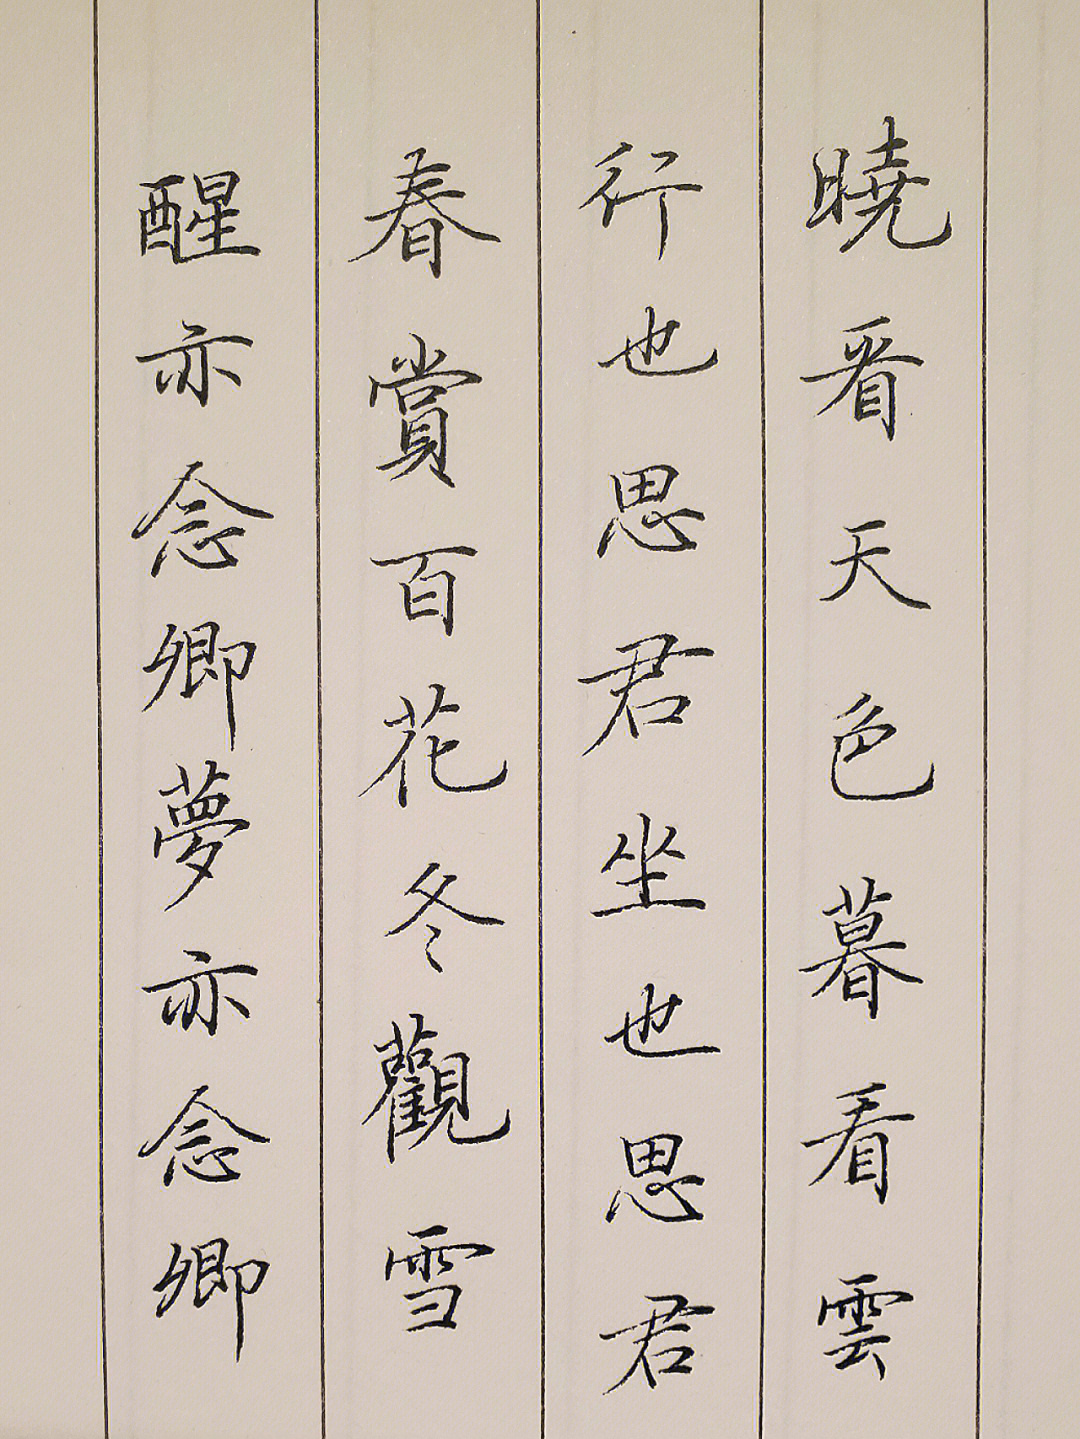 曉看天色暮看雲
行也思君坐也思君
春賞百花冬觀雪
醒亦念卿夢亦念卿